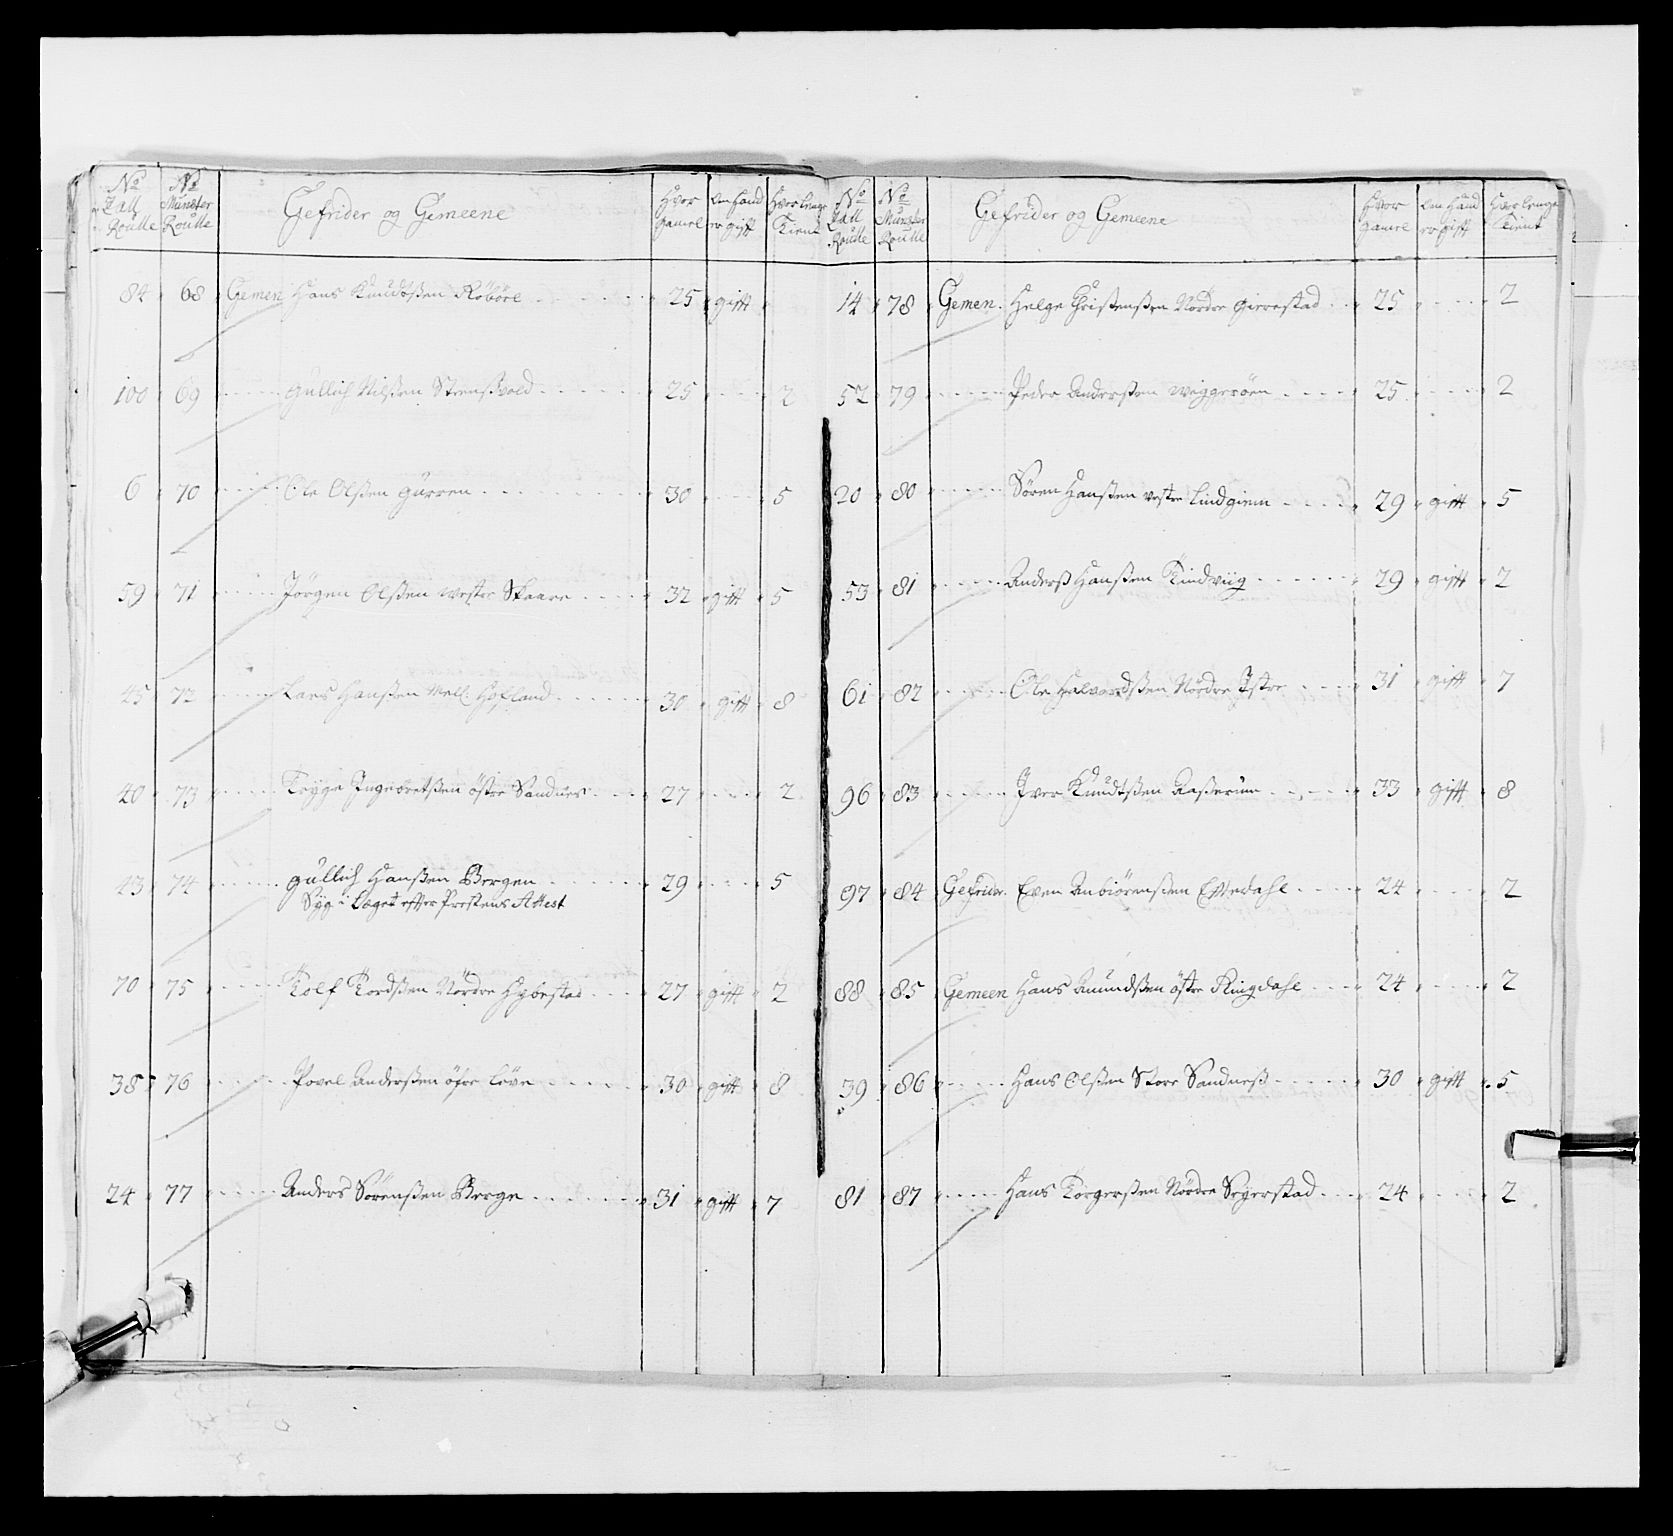 No Tall Roulle | No Munster Roulle | Gefrider og Gemeene | Hvor gamel | Om hand er gift | Hvor lenge tient
84 68 Gemen Hans Knudtsßen Röböle 25 gift
100 69 Gullich Nilsßen Strensßvold 25 2
6 70 Ole Olsßen Gurren 30 5
59 71 Jörgen Olsßen wester Skaare 32 gift 5
45 72 Lars Hansßen Mell: Hofland 30 gift 8
40 73 Trÿge Ingebretsßen östre Sandnes 27 2
43 74 Gullich Hansßen Bergen 29 5
Syg i Læget efter Prestens Attest
70 75 Rolf Tordsßen Nördre Hybestad 27 gift 2
38 76 Povel Andersßen öfre Löve 30 gift 8
24 77 Anders Sörensßen Berge 31 gift 7
No Tall Roulle | No Munster Roulle | Gefrider og Gemeene | Hvor gamel | Om hand er gift | Hvor lenge tient
14 78 Gemen Helge Christensßen Nordre Girrestad 25 2
52 79 Peder Andersßen Wiggeröen 25 2
20 80 Sören Hansßen vestre Lindgiem 29 gift 5
53 81 Andersß Hansßen Tindviig 29 gift 2
61 82 Ole Halvordsßen Nördre Istre 31 gift 7
96 83 Iver Knudtsßen Aasßerum 33 gift 8
97 84 Gefrider Even Anbiörensßen Eftedahl 24 2
88 85 Gemeen Hans Amundsßen östre Ringdahl 24 2
39 86 Hans Olsßen Store Sandnesß 30 gift 5
81 87 Hans Torgersßen Nördre Segerstad 24 2